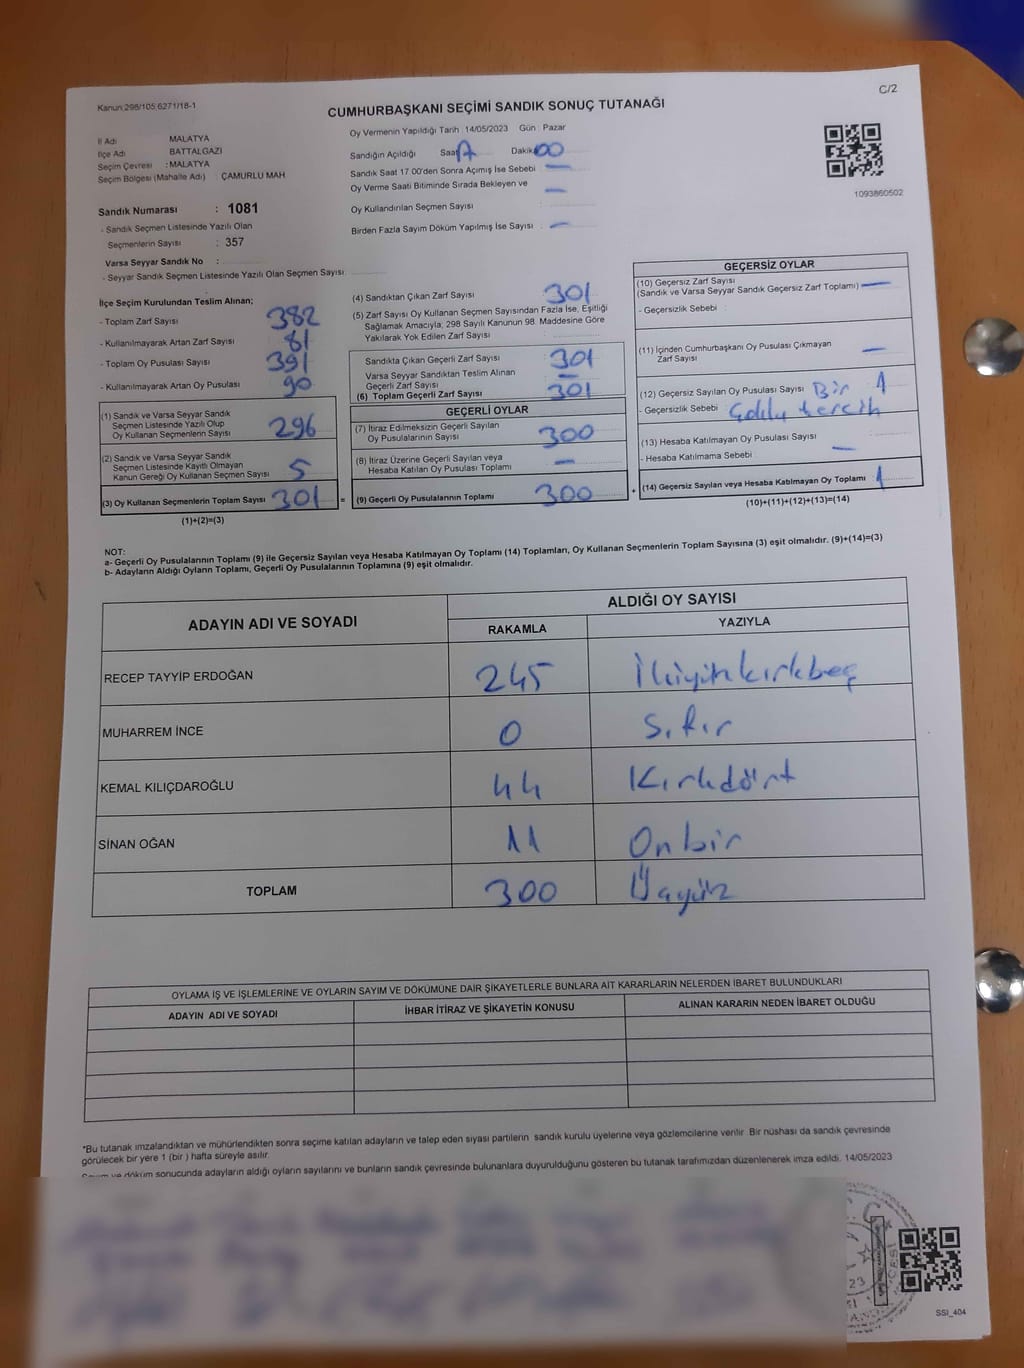 Kanun:298/105 6271/18-1
C/2
CUMHURBAŞKANI SEÇİMİ SANDIK SONUÇ TUTANAĞI
İl Adı MALATYA
İlçe Adı BATTALGAZI
Seçim Çevresi : MALATYA
Seçim Bölgesi (Mahalle Adı) : ÇAMURLU MAH
Sandık Numarası : 1081
- Sandık Seçmen Listesinde Yazılı Olan
Seçmenlerin Sayısı : 357
Varsa Seyyar Sandık No :
- Seyyar Sandık Seçmen Listesinde Yazılı Olan Seçmen Sayısı:
Oy Vermenin Yapıldığı Tarih : 14/05/2023 Gün : Pazar
Sandığın Açıldığı Saat Dakika 00
Sandık Saat 17 00'den Sonra Açımış İse Sebebi —
Oy Verme Saati Bitiminde Sırada Bekleyen ve —
Oy Kullandırılan Seçmen Sayısı :
Birden Fazla Sayım Döküm Yapılmış İse Sayısı : —
1093860502
İlçe Seçim Kurulundan Teslim Alınan;
- Toplam Zarf Sayısı 382
- Kullanılmayarak Artan Zarf Sayısı 81
- Toplam Oy Pusulası Sayısı 391
- Kullanılmayarak Artan Oy Pusulası 90
(1) Sandık ve Varsa Seyyar Sandık
Seçmen Listesinde Yazılı Olup
Oy Kullanan Seçmenlerin Sayısı 296
(2) Sandık ve Varsa Seyyar Sandık
Seçmen Listesinde Kayıtlı Olmayan
Kanun Gereği Oy Kullanan Seçmen Sayısı 5
(3) Oy Kullanan Seçmenlerin Toplam Sayısı 301 =
(1)+(2)=(3)
(4) Sandıktan Çıkan Zarf Sayısı 301
(5) Zarf Sayısı Oy Kullanan Seçmen Sayısından Fazla İse, Eşitliği
Sağlamak Amacıyla; 298 Sayılı Kanunun 98. Maddesine Göre
Yakılarak Yok Edilen Zarf Sayısı
Sandıkta Çıkan Geçerli Zarf Sayısı 301
Varsa Seyyar Sandıktan Teslim Alınan
Geçerli Zarf Sayısı —
(6) Toplam Geçerli Zarf Sayısı 301
GEÇERLİ OYLAR
(7) İtiraz Edilmeksizin Geçerli Sayılan
Oy Pusulalarının Sayısı 300
(8) İtiraz Üzerine Geçerli Sayılan veya
Hesaba Katılan Oy Pusulası Toplamı —
(9) Geçerli Oy Pusulalarının Toplamı 300 +
GEÇERSİZ OYLAR
(10) Geçersiz Zarf Sayısı
(Sandık ve Varsa Seyyar Sandık Geçersiz Zarf Toplamı) —
- Geçersizlik Sebebi :
(11) İçinden Cumhurbaşkanı Oy Pusulası Çıkmayan
Zarf Sayısı —
(12) Geçersiz Sayılan Oy Pusulası Sayısı Bir 1
- Geçersizlik Sebebi : Çoklu tercih
(13) Hesaba Katılmayan Oy Pusulası Sayısı
- Hesaba Katılmama Sebebi : —
(14) Geçersiz Sayılan veya Hesaba Katılmayan Oy Toplamı : 1
(10)+(11)+(12)+(13)=(14)
NOT:
a- Geçerli Oy Pusulalarının Toplamı (9) ile Geçersiz Sayılan veya Hesaba Katılmayan Oy Toplamı (14) Toplamları, Oy Kullanan Seçmenlerin Toplam Sayısına (3) eşit olmalıdır. (9)+(14)=(3)
b- Adayların Aldığı Oyların Toplamı, Geçerli Oy Pusulalarının Toplamına (9) eşit olmalıdır.
ADAYIN ADI VE SOYADI ALDIĞI OY SAYISI
RAKAMLA YAZIYLA
RECEP TAYYİP ERDOĞAN 245 İkiyüzkırkbeş
MUHARREM İNCE 0 Sıfır
KEMAL KILIÇDAROĞLU 44 Kırkdört
SİNAN OĞAN 11 Onbir
TOPLAM 300 Üçyüz
OYLAMA İŞ VE İŞLEMLERİNE VE OYLARIN SAYIM VE DÖKÜMÜNE DAİR ŞİKAYETLERLE BUNLARA AİT KARARLARIN NELERDEN İBARET BULUNDUKLARI
ADAYIN ADI VE SOYADI İHBAR İTİRAZ VE ŞİKAYETİN KONUSU ALINAN KARARIN NEDEN İBARET OLDUĞU
*Bu tutanak imzalandıktan ve mühürlendikten sonra seçime katılan adayların ve talep eden siyasi partilerin sandık kurulu üyelerine veya gözlemcilerine verilir. Bir nüshası da sandık çevresinde
görülecek bir yere 1 (bir ) hafta süreyle asılır.
Sayım ve döküm sonucunda adayların aldığı oyların sayılarını ve bunların sandık çevresinde bulunanlara duyurulduğunu gösteren bu tutanak tarafımızdan düzenlenerek imza edildi. 14/05/2023
SSI_404